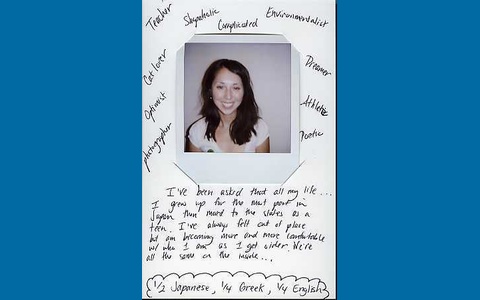 Teacher
Shopaholic
Complicated
Environmentalist
Cat lover
Dreamer
Optimist
Athletic
photographer
Poetic
I've been asked that all my life...
I grew up for the most part in
Japan then moved to the states as a
teen. I've always felt out of place
but am becoming more and more comfortable
w/ who I am as I get older. We're
all the same on the inside...
1/2 Japanese, 1/4 Greek, 1/4 English